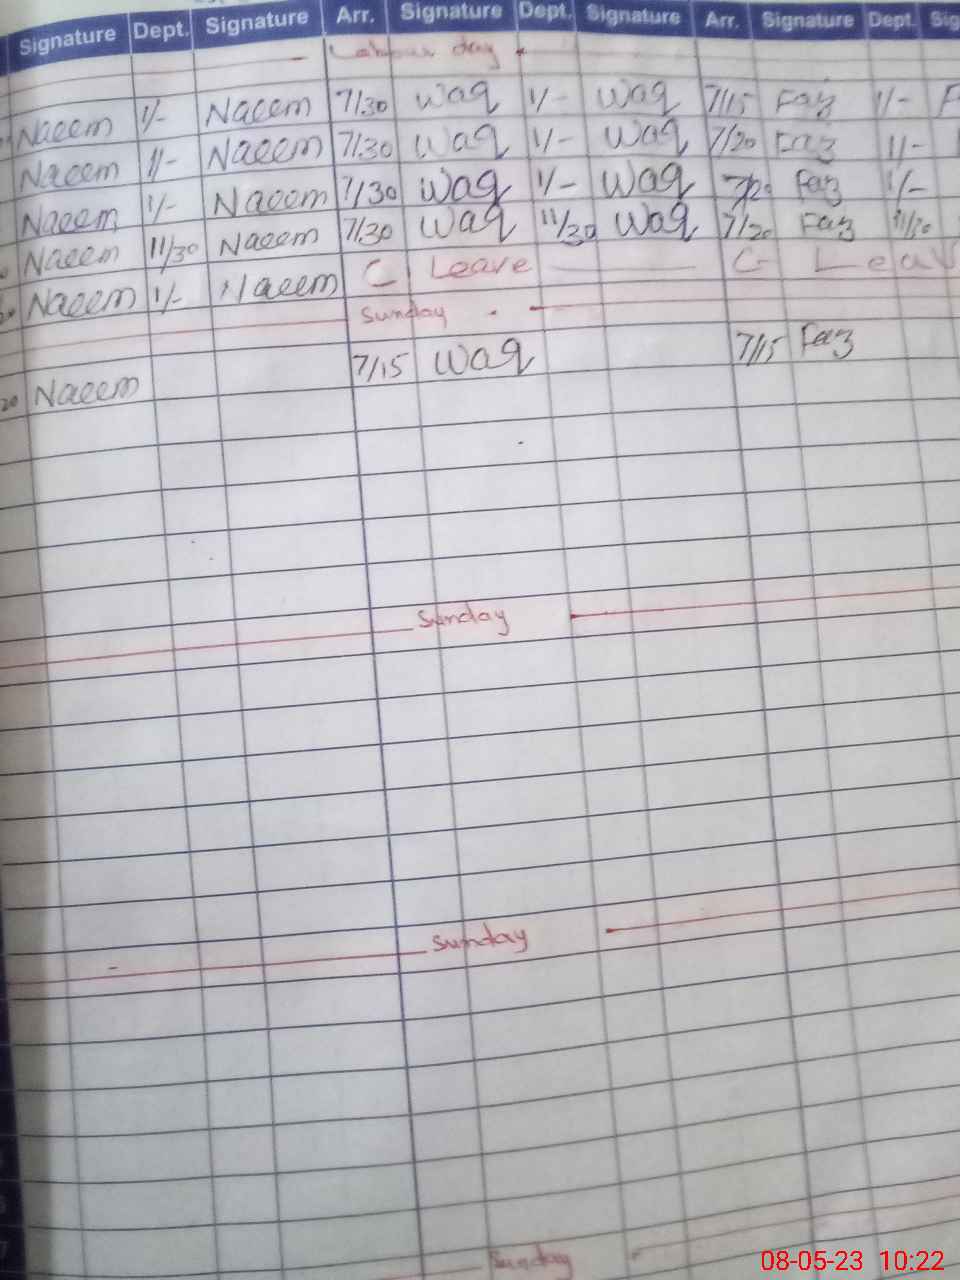 Signature Dept. Signature Arr. Signature Dept. Signature Arr. Signature Dept. Sig
Labour day
Naeem 1/- Naeem 7/30 Waq 1/- Waq 7/15 Faz 1/- F
Naeem 1/- Naeem 7/30 Waq 1/- Waq 7/20 Faz 1/-
Naeem 1/- Naeem 7/30 Waq 1/- Waq 7/20 Faz 1/-
Naeem 11/30 Naeem 7/30 Waq 11/30 Waq 7/20 Faz 11/30
Naeem 1/- Naeem C Leave C Leav
Sunday
20 Naeem 7/15 Waq 7/15 Faz
Sunday
Sunday
Sunday
08-05-23 10:22